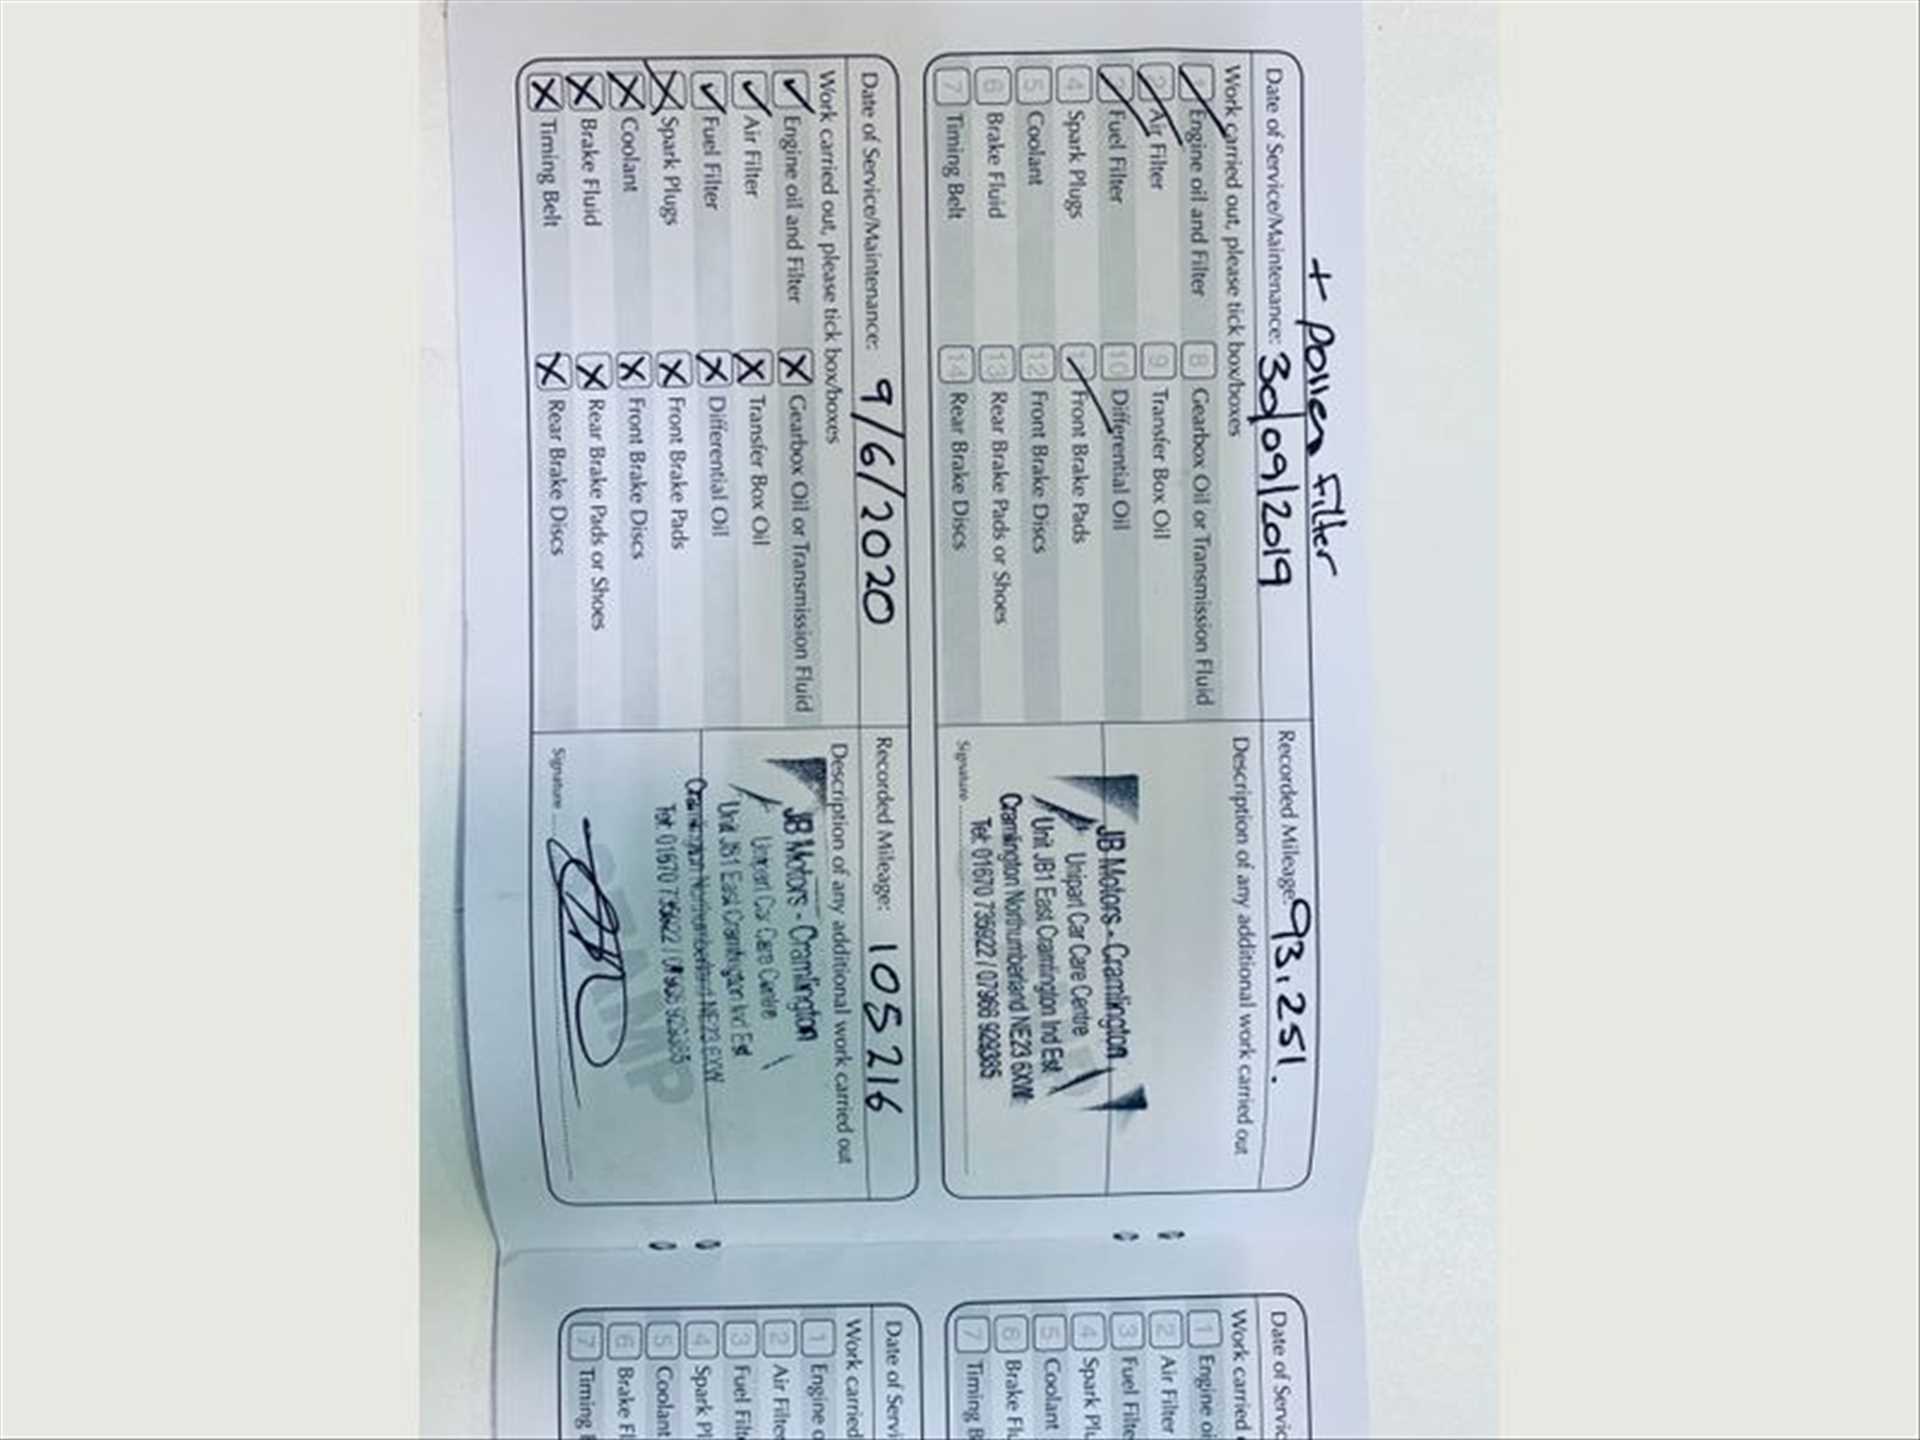 + Pollen Filter
Date of Service/Maintenance: 30/09/2019
Recorded Mileage: 93,251.
Work carried out, please tick box/boxes
Description of any additional work carried out
1 Engine oil and Filter
8 Gearbox Oil or Transmission Fluid
2 Air Filter
9 Transfer Box Oil
3 Fuel Filter
10 Differential Oil
4 Spark Plugs
11 Front Brake Pads
5 Coolant
12 Front Brake Discs
6 Brake Fluid
13 Rear Brake Pads or Shoes
7 Timing Belt
14 Rear Brake Discs
JB Motors - Cramlington
Unipart Car Care Centre
Unit JB1 East Cramlington Ind Est
Cramlington Northumberland NE23 6XW
Tel: 01670 735922 / 07966 929385
Signature
Date of Service/Maintenance: 9/6/2020
Recorded Mileage: 105216
Work carried out, please tick box/boxes
Description of any additional work carried out
Engine oil and Filter
Gearbox Oil or Transmission Fluid
Air Filter
Transfer Box Oil
Fuel Filter
Differential Oil
Spark Plugs
Front Brake Pads
Coolant
Front Brake Discs
Brake Fluid
Rear Brake Pads or Shoes
Timing Belt
Rear Brake Discs
JB Motors - Cramlington
Unipart Car Care Centre
Unit JB1 East Cramlington Ind Est
Cramlington Northumberland NE23 6XW
Tel: 01670 735922 /
STAMP
Signature
Date of Servic
Work carried
1 Engine oi
2 Air Filter
3 Fuel Filte
4 Spark Plu
5 Coolant
6 Brake Flu
7 Timing B
Date of Servi
Work carried
1 Engine o
2 Air Filter
3 Fuel Filte
4 Spark Pl
5 Coolant
6 Brake Fl
7 Timing